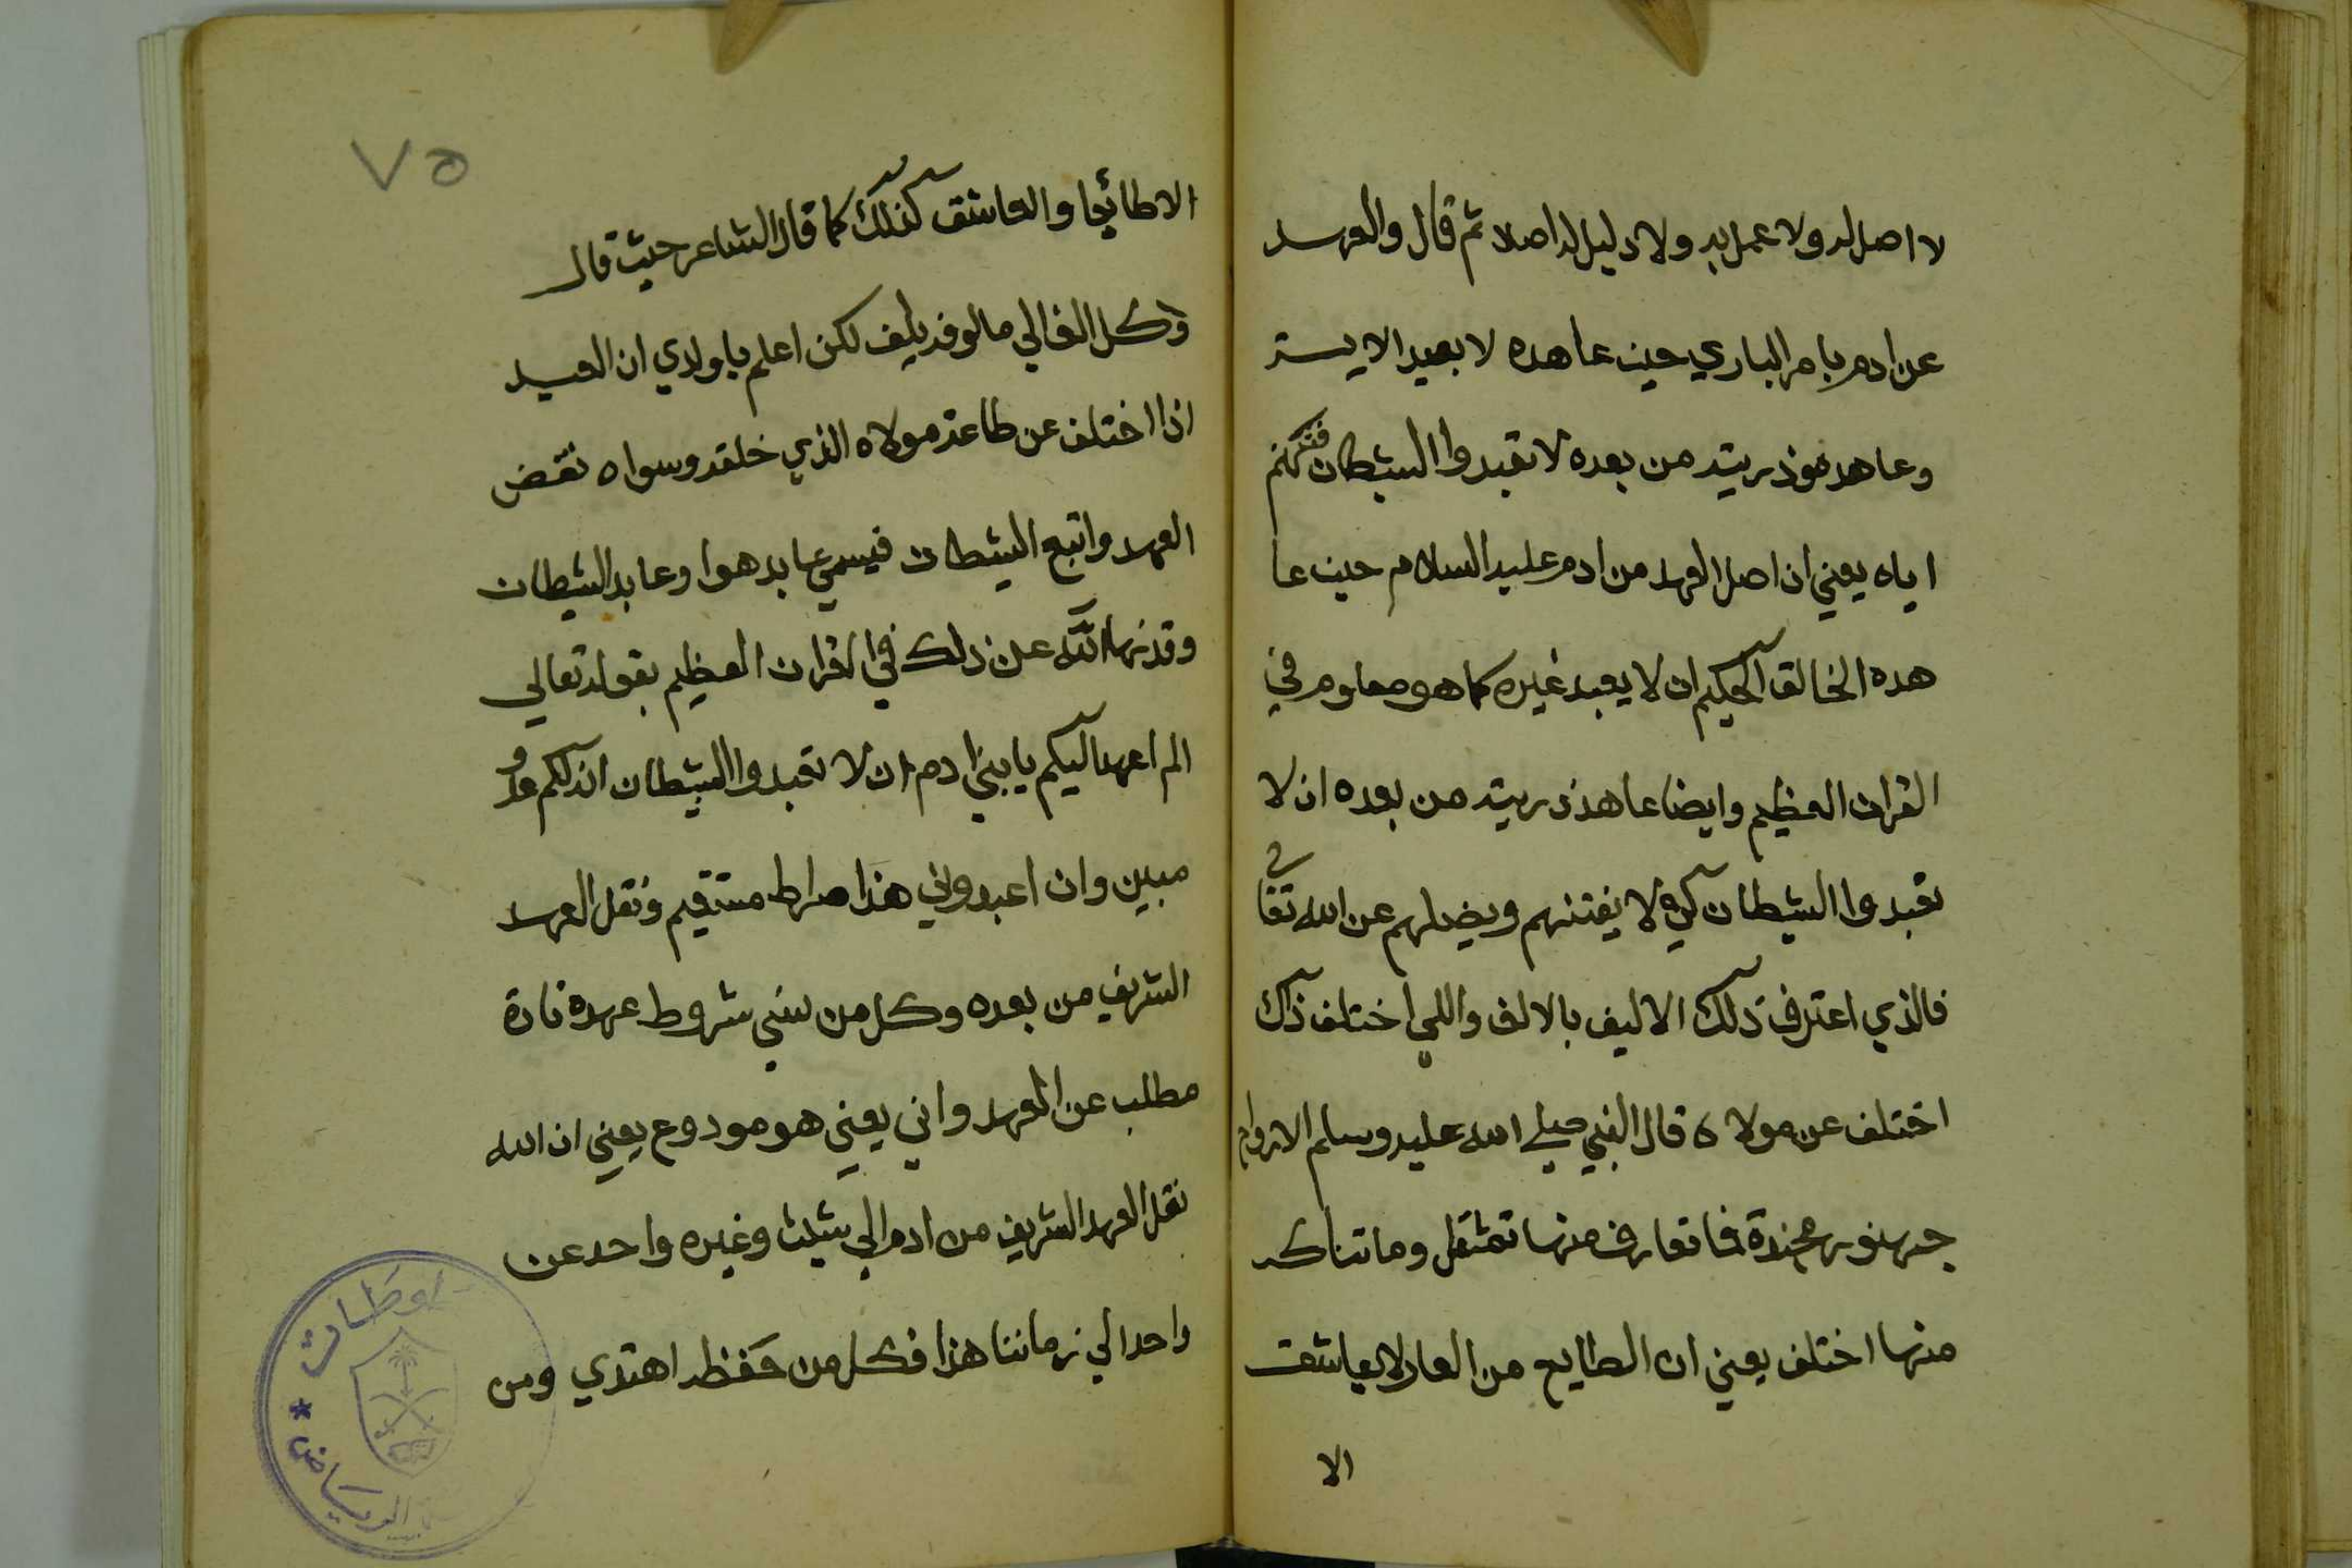 لا اصل له ولا عمل به ولا دليل له اصلا ثم قال والعهد
عن ادم بامر الباري حين عاهده لا بعيد الا يستر
وعاهد هوذريته من بعده لا تعبدوا الشيطان فتنكم
اياه يعني ان اصل العهد من ادم عليه السلام حين عا
هده الخالق الحكيم ان لا يعبد غيره كما هو معلوم في
القران العظيم وايضا عاهد ذريته من بعده ان لا
تعبدوا الشيطان كي لا يفتنهم ويضلهم عن الله تعا لى
فالذي اعترف ذلك الاليف بالالف واللي اختلف ذاك
اختلف عن مولاه قال النبي صلى الله عليه وسلم الارواح
جنود مجندة فما تعارف منها تمثقل وما تناكر
منها اختلف يعني ان الطايع من العاد لا يعاشق
الا
٧٥
الا طائعا والعاشق كذلك كما قال الشاعر حيث قال
وكل الغالي مالوفه يليف لكن اعلم يا ولدي ان العبد
اذا اختلف عن طاعة مولاه الذي خلقه وسواه نقض
العهد واتبع الشيطان فيسمي عابد هوا وعابد الشيطان
وقد نها الله عن ذلك في القران العظيم بقوله تعالي
الم اعهد اليكم يا بني ادم ان لا تعبدوا الشيطان انه لكم عدو
مبين وان اعبدوني هذا صراط مستقيم ونقل العهد
الشريف من بعده وكل من نسي شروط عهده نادة
مطلب عن العهد واني يعني هو مودوع يعني ان الله
نقل العهد الشريف من ادم الي شيث وغيره واحد عن
واحد الي زماننا هذا فكل من حفظه اهتدي ومن
الرياض